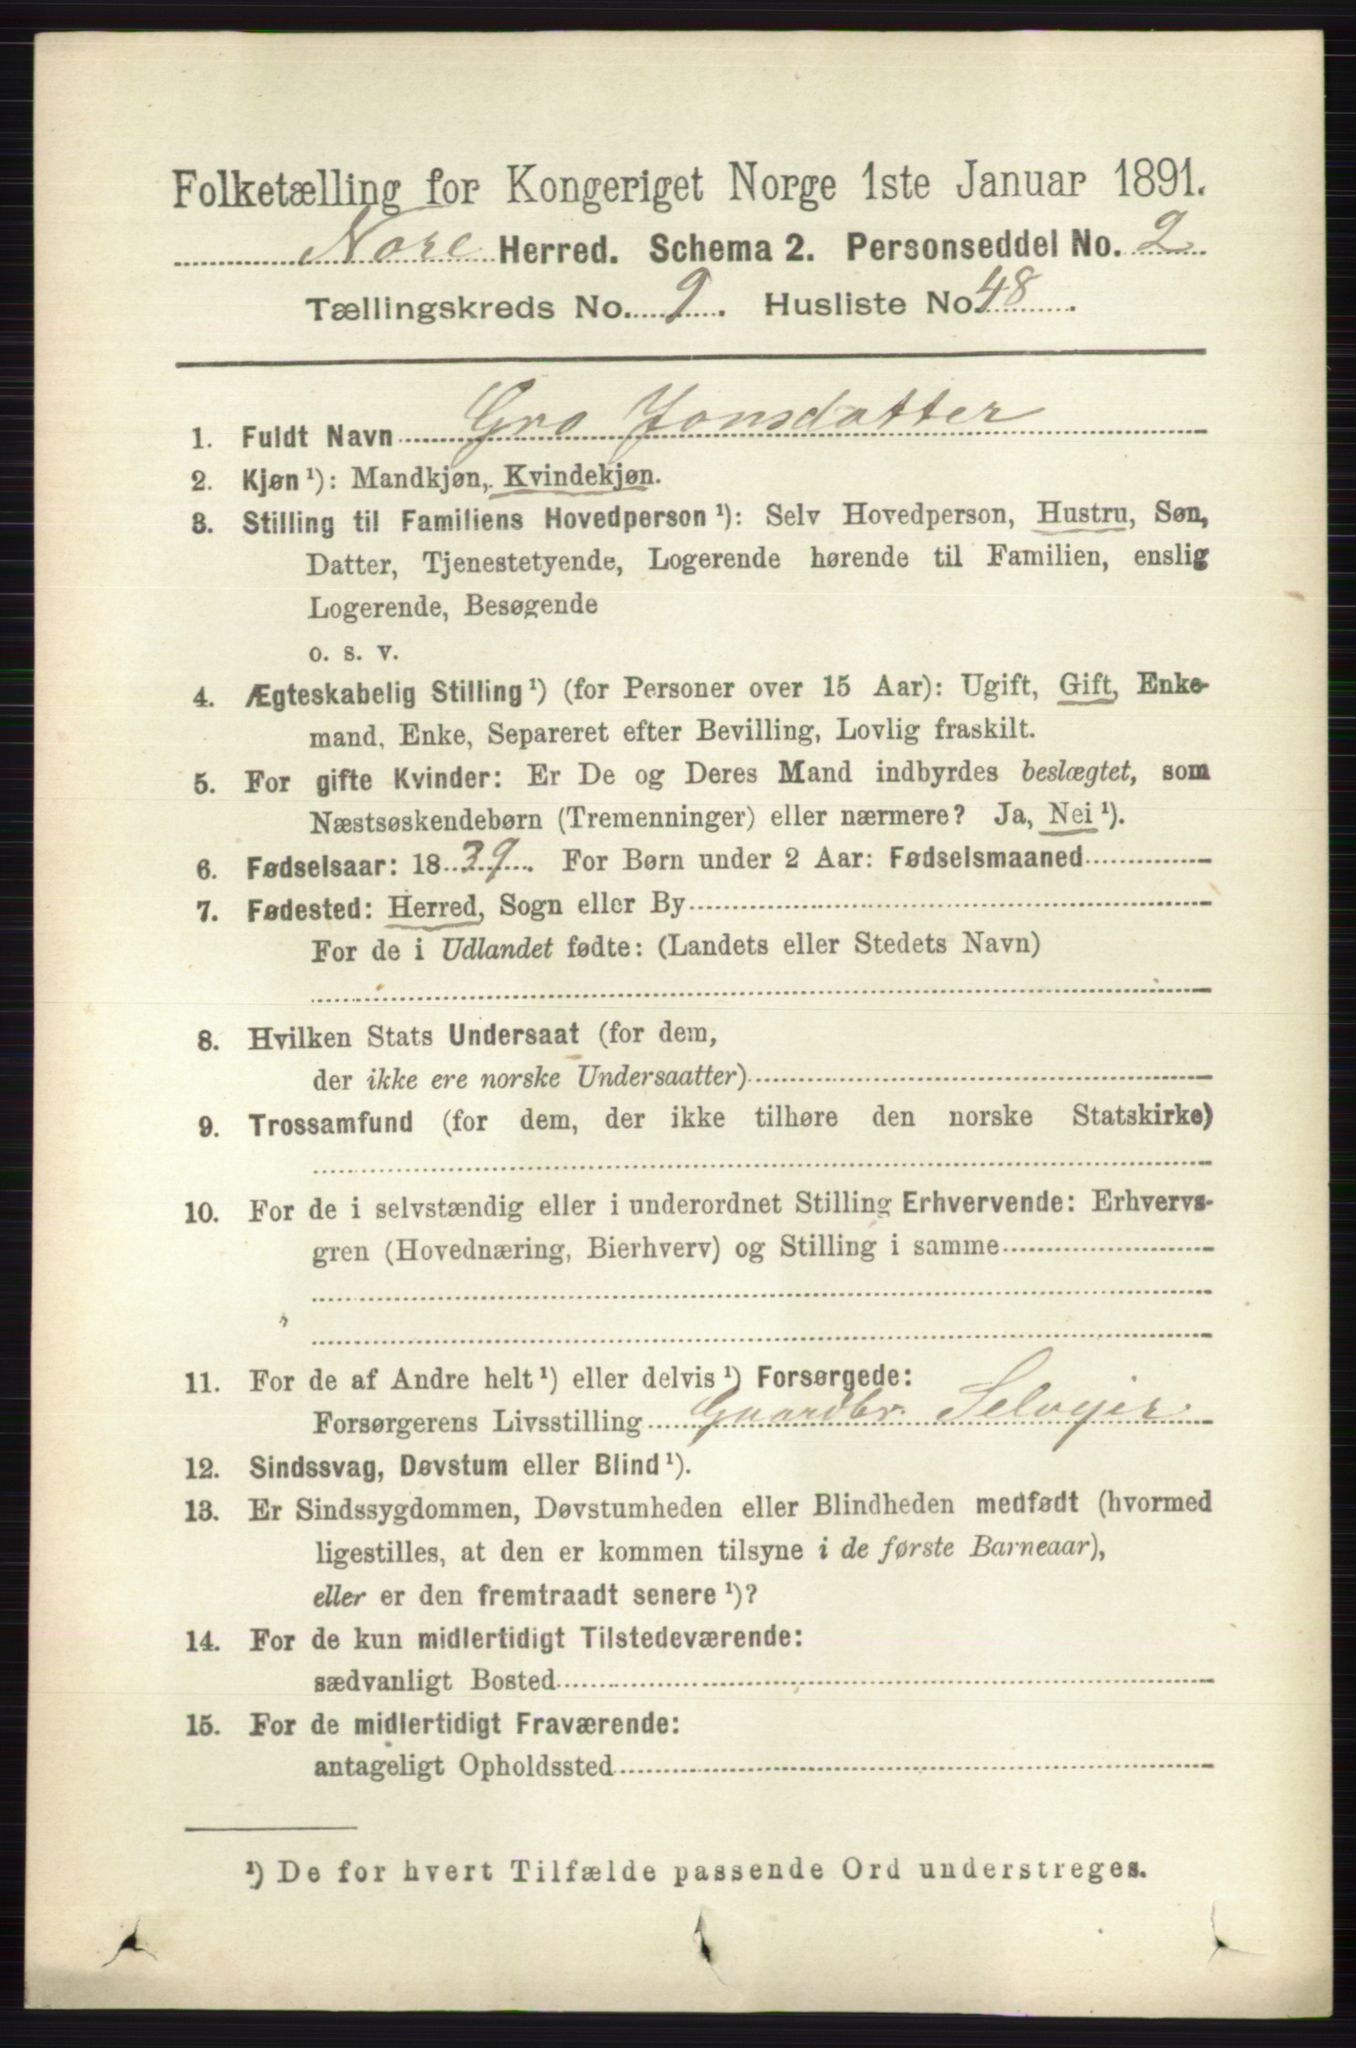 Folketælling for Kongeriget Norge 1ste Januar 1891.
Nore Herred. Schema 2. Personseddel No. 2
Tællingskreds No. 9. Husliste No 48.
1. Fuldt Navn Gro Jonsdatter
2. Kjøn ¹): Mandkjøn, Kvindekjøn.
3. Stilling til Familiens Hovedperson ¹): Selv Hovedperson, Hustru, Søn,
Datter, Tjenestetyende, Logerende hørende til Familien, enslig
Logerende, Besøgende
o. s. v.
4. Ægteskabelig Stilling ¹) (for Personer over 15 Aar): Ugift, Gift, Enke-
mand, Enke, Separeret efter Bevilling, Lovlig fraskilt.
5. For gifte Kvinder: Er De og Deres Mand indbyrdes beslægtet, som
Næstsøskendebørn (Tremenninger) eller nærmere? Ja, Nei ¹).
6. Fødselsaar: 1839. For Børn under 2 Aar: Fødselsmaaned
7. Fødested: Herred, Sogn eller By
For de i Udlandet fødte: (Landets eller Stedets Navn)
8. Hvilken Stats Undersaat (for dem,
der ikke ere norske Undersaatter)
9. Trossamfund (for dem, der ikke tilhøre den norske Statskirke)
10. For de i selvstændig eller i underordnet Stilling Erhvervende: Erhvervs-
gren (Hovednæring, Bierhverv) og Stilling i samme
11. For de af Andre helt ¹) eller delvis ¹) Forsørgede:
Forsørgerens Livsstilling Gaardbr. Selvejer
12. Sindssvag, Døvstum eller Blind ¹).
13. Er Sindssygdommen, Døvstumheden eller Blindheden medfødt (hvormed
ligestilles, at den er kommen tilsyne i de første Barneaar),
eller er den fremtraadt senere ¹)?
14. For de kun midlertidigt Tilstedeværende:
sædvanligt Bosted
15. For de midlertidigt Fraværende:
antageligt Opholdssted
¹) De for hvert Tilfælde passende Ord understreges.